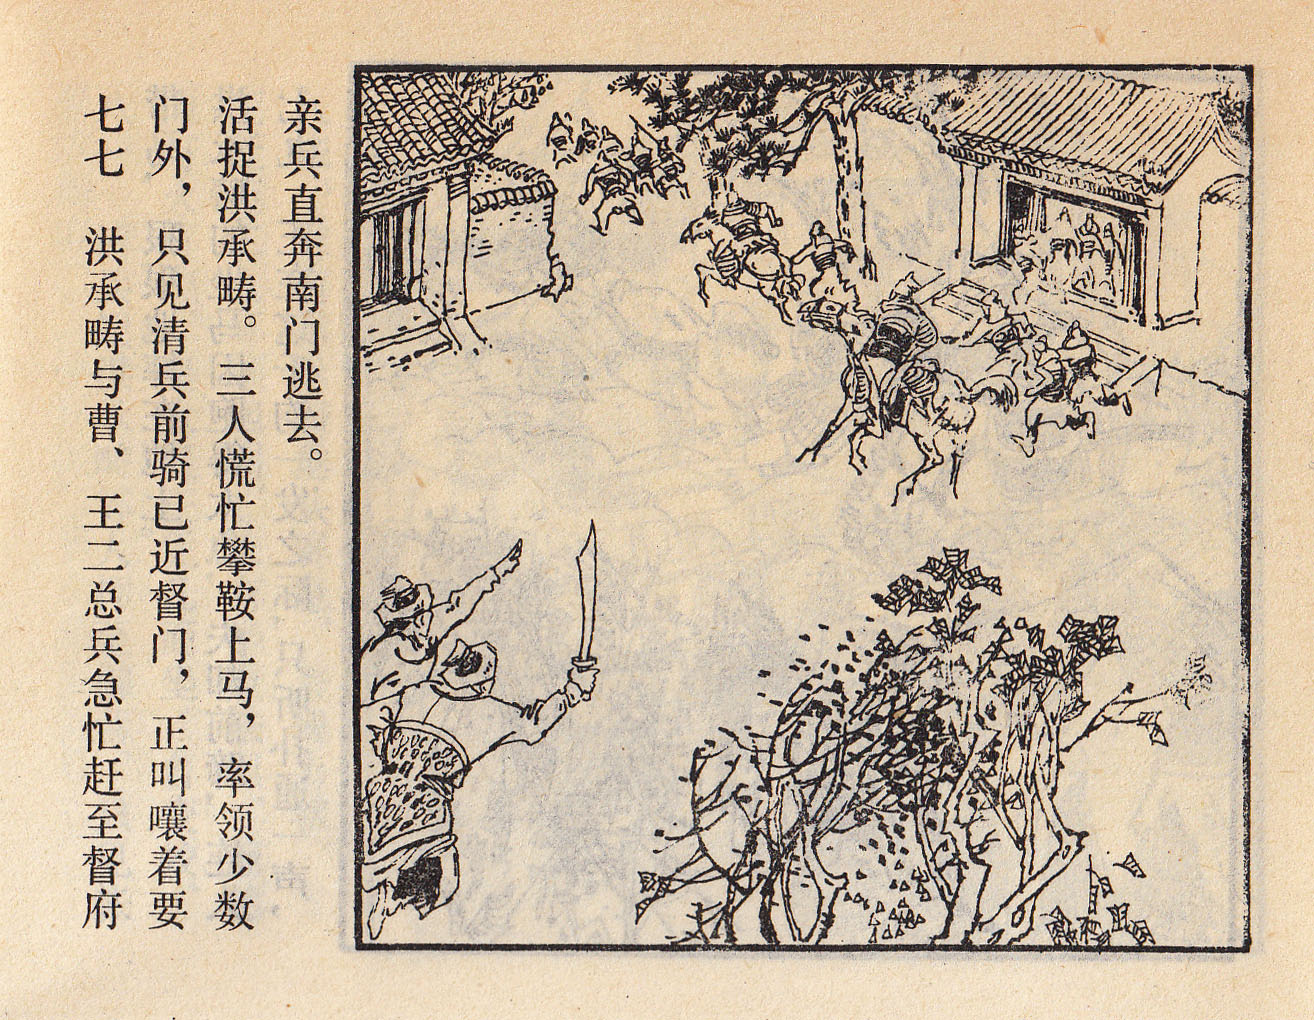 七七　洪承畴与曹、王二总兵急忙赶至督府
门外，只见清兵前骑已近督门，正叫嚷着要
活捉洪承畴。三人慌忙攀鞍上马，率领少数
亲兵直奔南门逃去。